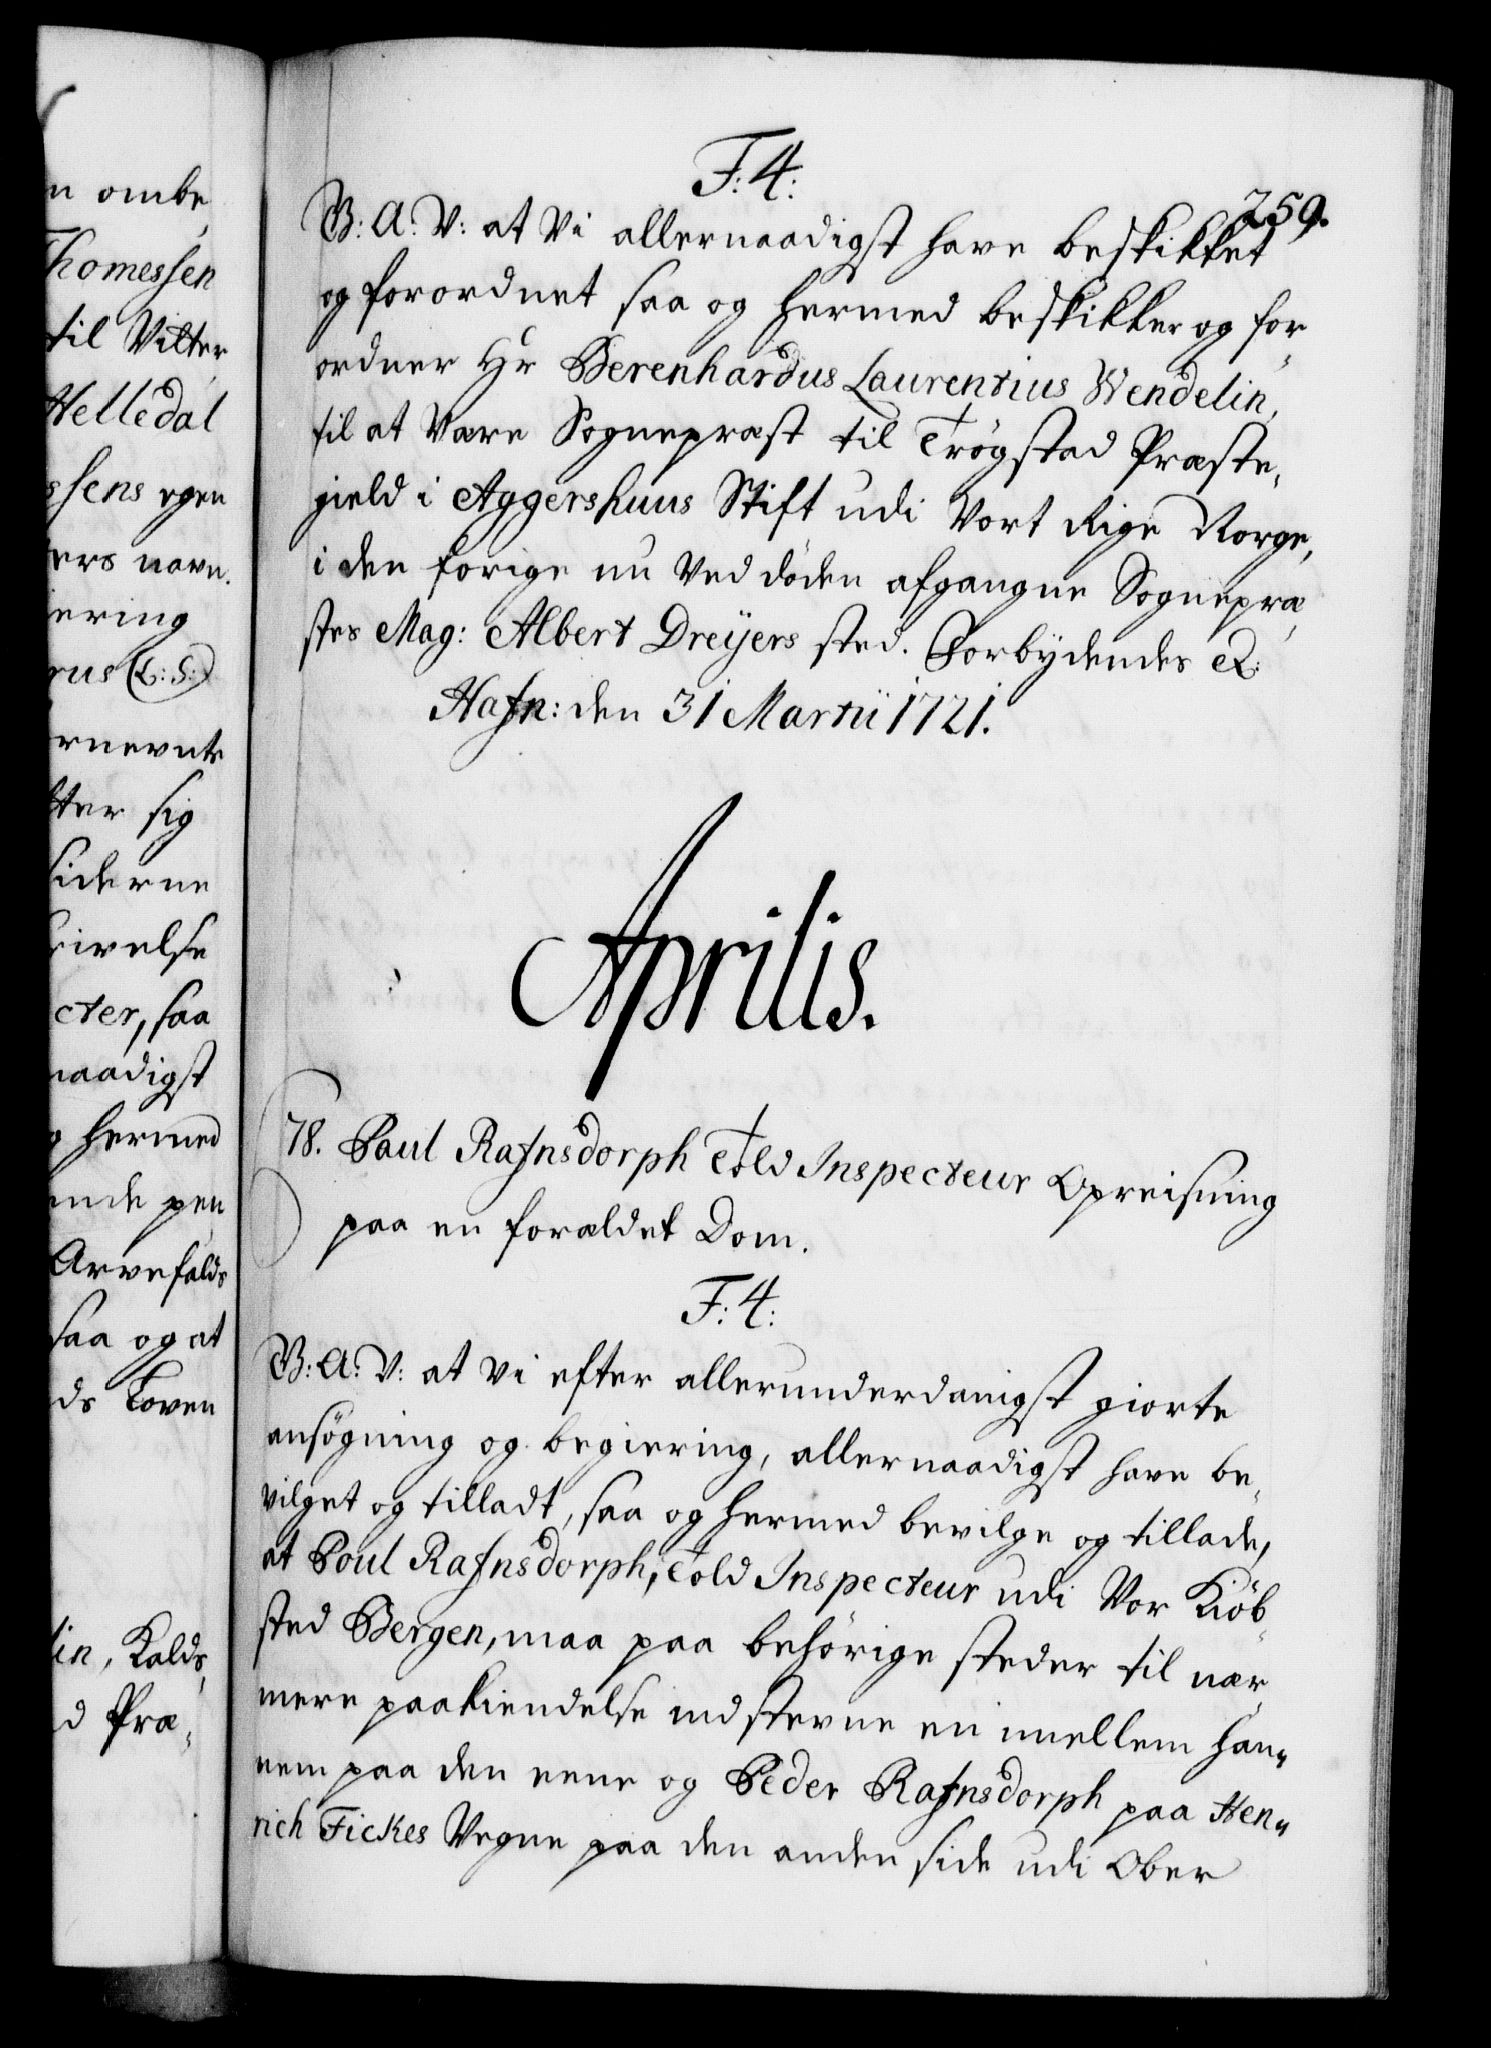 n ombe„
Thomessen
til Vitter„
Helledal
ssens egen
ers navn.
ering
rus (L:S:)
rnevnte
tter sig
siderne
rivelse
cter, saa
naadigst
g hermed
ende pen„
Arvefalds
saa og at
ds Loven
lin, Kalds„
d Præ„
F:4:
259.
B: A: V: at Vi allernaadigst have beskikket
og forordnet saa og hermed beskikker og for„
ordner Hr Berenhardus Laurentius Wendelin,
til at være Sognepræst til Trögstad Præste„
gield i Aggershuus Stift udi Vort Rige Norge,
i den forige nu ved döden afgangne Sognepræ„
stes Mag: Albert Dreÿers sted. Forbydendes &:
Hafn: den 31 Martii 1721.
Aprilis.
78. Paul Rafnsdorph Told Inspecteur Opreisning
paa en forældet Dom.
F:4:
B: A: V: at vi efter allerunderdanigst giorte
ansögning og begiering, allernaadigst have be„
vilget og tilladt, saa og hermed bevilge og tillade,
at Poul Rafnsdorph, Told Inspecteur udi Vor Kiöb„
sted Bergen, maa paa behörige steder til nær„
mere paakiendelse indstevne en imellem han„
nem paa den eene og Peder Rafnsdorph paa Hen„
rich Fickes Vegne paa den anden side udi Ober